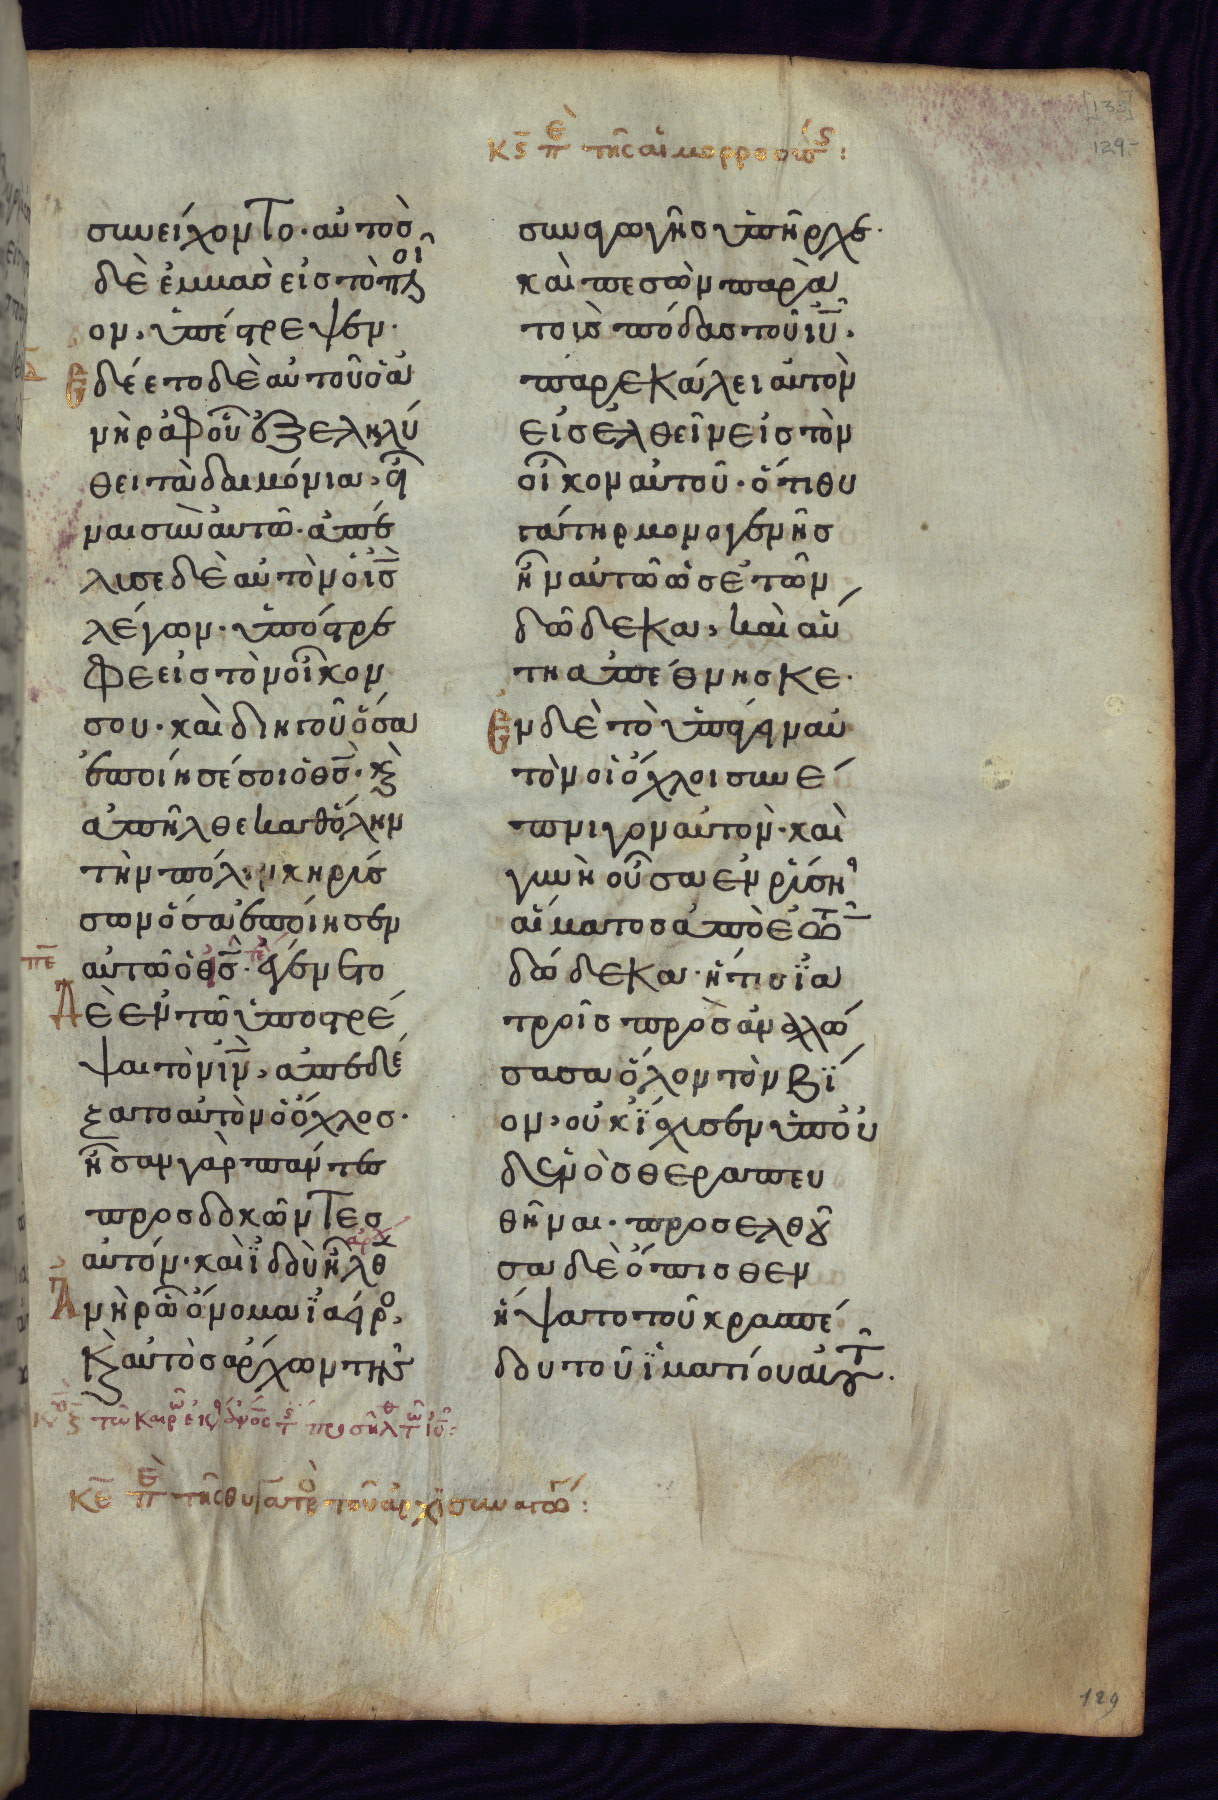 [130]
129
κϛ̄ πε̄ τῆς αἱμορροούσ(ης):
συνείχοντο· αὐτὸσ
δὲ ἐμβὰσ εἰσ τὸ πλοῖ
ον, ὑπέστρεψεν·
ἐδέετο δὲ αὐτοῦ ὁ ἀ
νὴρ ἀφ' οὗ ἐξεληλύ
θει τὰ δαιμόνια, εἶ
ναι σὺν αὐτῶ· ἀπέ
λυσε δὲ αὐτὸν ὁ ἰσ̄
λέγων· ὑπόστρε
φε εἰσ τὸν οἶκον
σου· καὶ διηγοῦ ὅσα
ἐποίησέ σοι ὁ θσ̄· καὶ
ἀπῆλθε καθ' ὅλην
τὴν πόλιν κηρύσ
σων ὅσα ἐποίησεν
πε̄ αὐτῶ ὁ θσ̄· ἐγένετο
Δὲ ἐν τῶ ὑποστρέ
ψαι τὸν ιν̄, ἀπεδέ
ξατο αὐτὸν ὁ ὄχλοσ·
ἦσαν γὰρ πάντεσ
προσδοκῶντεσ
αὐτόν· καὶ ἰδοὺ ἦλθ
Ἀνὴρ ὧ ὄνομα ϊάειρο,
κ(αὶ) αὐτὸσ ἄρχων τῆσ
συναγωγῆσ ὑπῆρχε·
καὶ πεσὼν παρὰ
τοὺσ πόδασ τοῦ ιῡ,
παρεκάλει αὐτὸν
εἰσελθεῖν εἰσ τὸν
οἶκον αὐτοῦ· ὅτι θυ
γάτηρ μονογενὴσ
ἦν αὐτῶ ὡσ ἐτῶν
δώδεκα, καὶ αὕ
τη ἀπέθνησκε·
Ἐν δὲ τὸ ὑπάγειν αὐ
τὸν οἱ ὄχλοι συνέ
πνιγον αὐτόν· καὶ
γυνὴ οὖσα ἐν ρύσει
αἵματοσ ἀπὸ ἐτῶν
δώδεκα· ἥτισ ϊα
τροῖσ προσαναλώ
σασα ὅλον τὸν βί
ον, οὐκ ἴσχυσεν ὑπ' οὐ
δενὸσ θεραπευ
θῆναι· προσελθοῦ
σα δὲ ὄπισθεν
ἥψατο τοῦ κρασπέ
δου τοῦ ϊματίου αὐτοῦ.
τῶ καιρῶ ἐκείνω ἄνο̄σ τισ προσῆλθ τῶ ιῡ:
κε̄ πε̄ τῆς θυγατρὸ τοῦ ἀρχισυναγώγ:
129